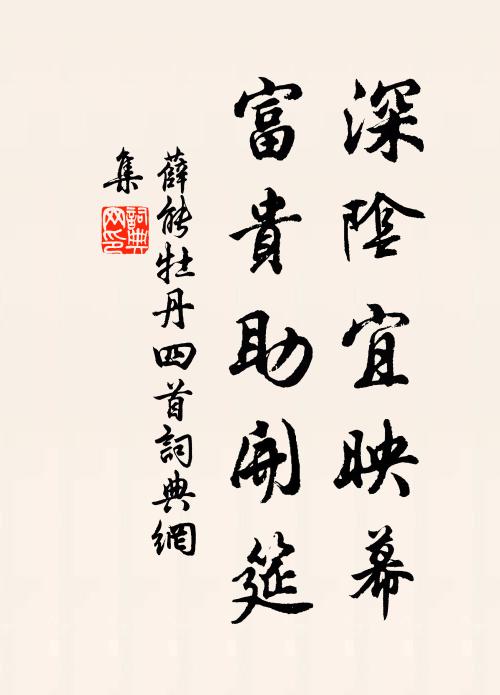 深陰宜映幕
富貴助開筵
薛能牡丹四首詞典網
集
詞典網印